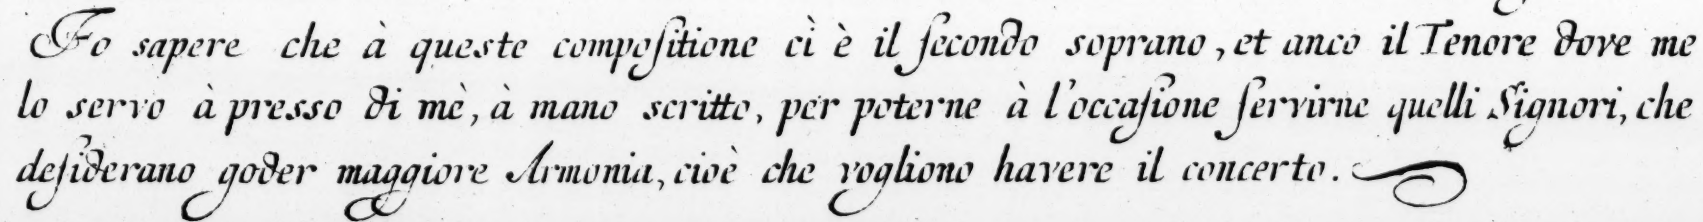 Fo sapere che à queste compoſitione ci è il ſecondo soprano, et anco il Tenore dove me
lo servo à presso di mè, à mano scritto, per poterne à l'occaſione ſervirne quelli Signori, che
deſiderano goder maggiore Armonia, cioè che vogliono havere il concerto.